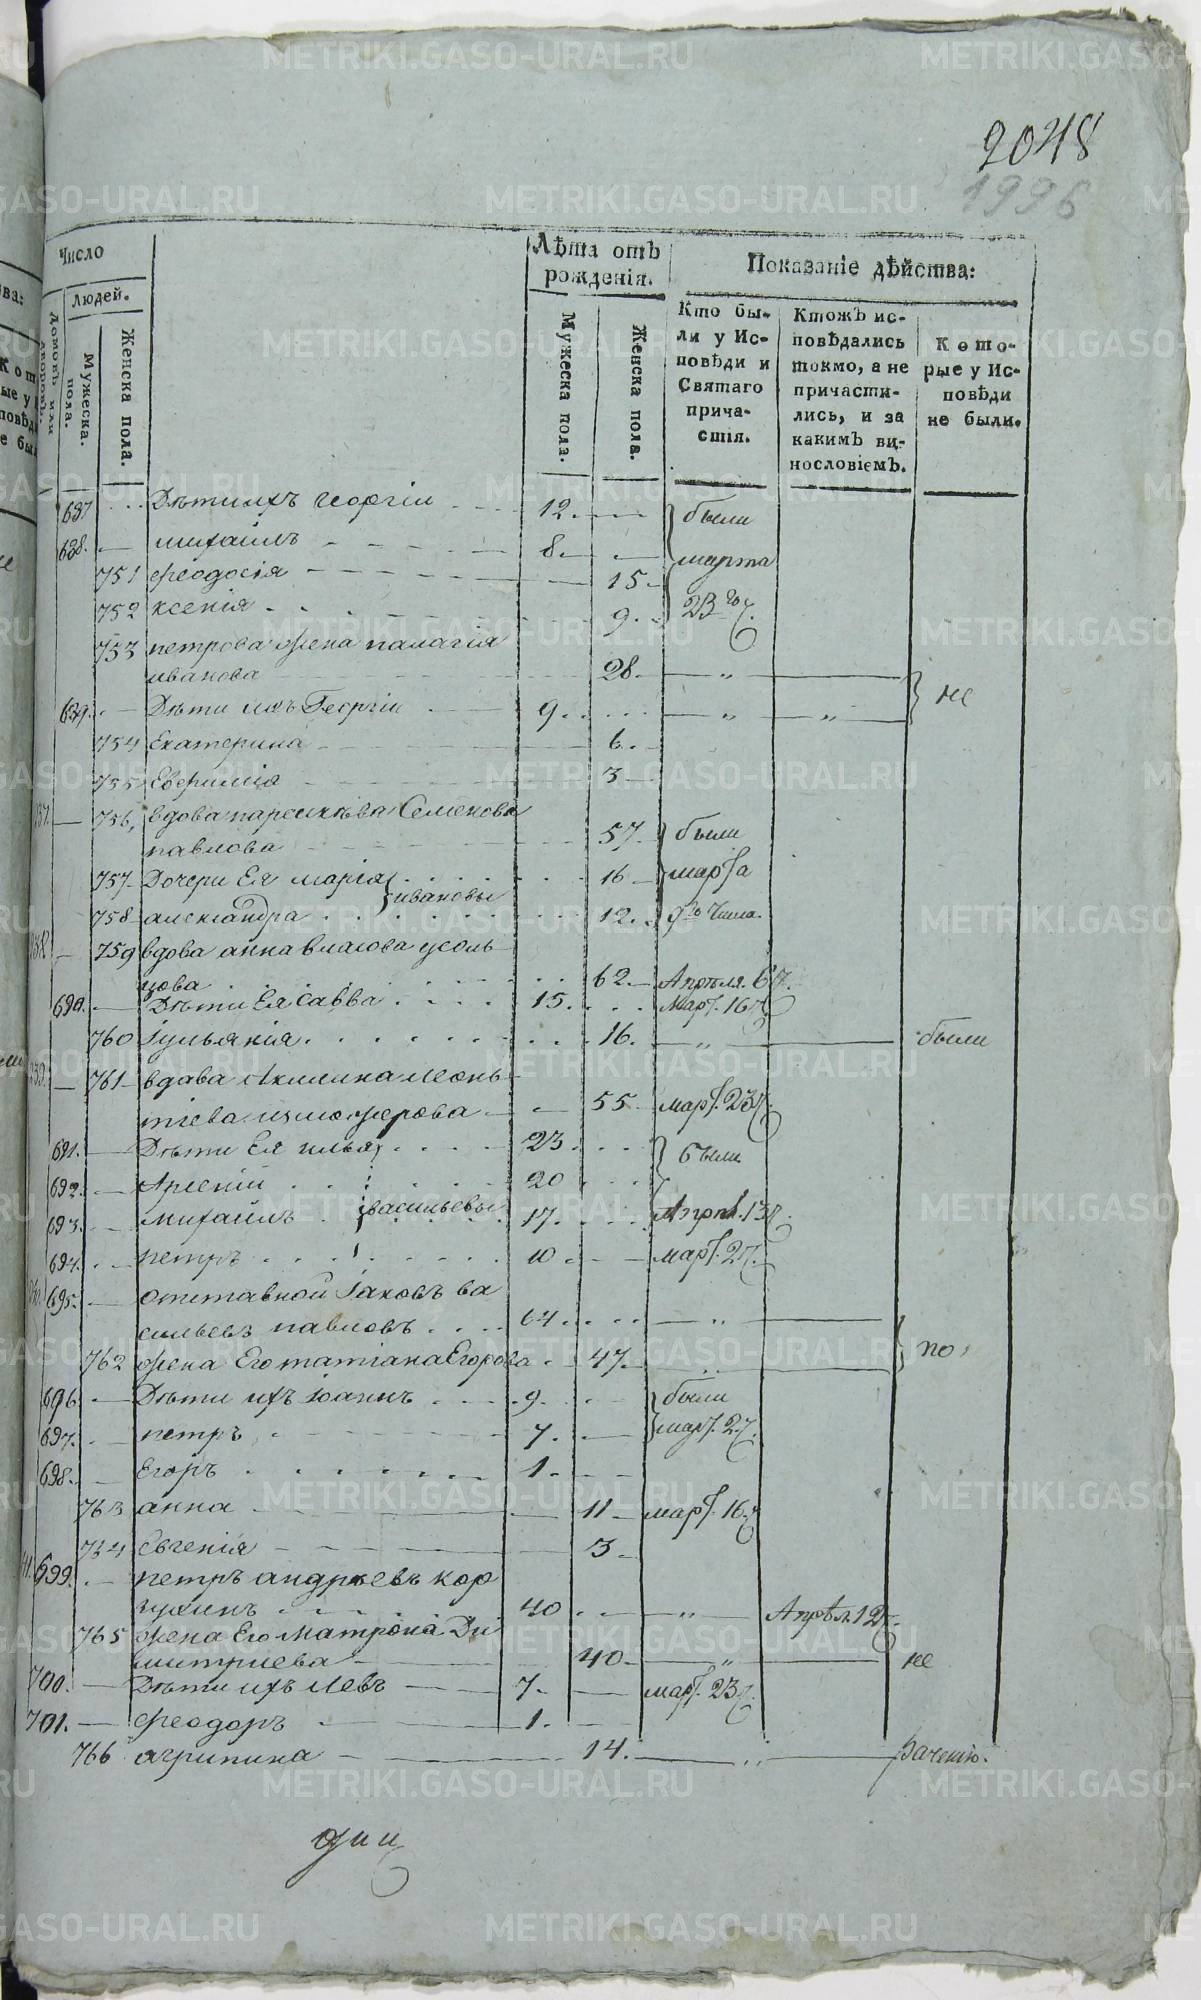 2048
1996
Число
людей.
Домовъ или дворовъ.
Мужеска пола.
Женска пола.
Лѣта отъ рожденія.
Мужеска пола.
Женска пола.
Показаніе дѣйства:
Кто бы-
ли у Ис-
повѣди и
Святаго
прича-
стія.
Ктожъ ис-
повѣдались
токмо, а не
причасти-
лись, и за
какимъ ви-
нословіемъ.
Кото-
рые у Ис-
повѣди
не были.
687 Дѣти ихъ Георгіи 12 были
688. михаилъ 8. марта
751 феодосія 15 23го ч.
752 ксенія 9.
753 петрова жена палагія
иванова 28 — „ не
689. Дѣти ихъ Георгіи 9. — „ — „
754 Екатерина 6.
755 Еверимія 3
137. 756, вдова парсикѣва Семенова
павлова 57 были
757 Дочери Ея марія ивановы 16 марта
758 александра 12. 9го Числа.
138. 759 вдова анна власова усоль-
цова 62 Апреля. 6 ч.
690. Дѣти Ея савва 15. Март. 16 ч.
760 Іульянія 16. — „ были
139. 761 вдава Акилина леонь-
тіева изможерова 55 март. 23 ч.
691. Дѣти Ея илья 23 были
692. Арсеній 20
693. михаилъ васильевы 17. Апрѣл. 13 ч.
694. петръ 10 март. 2 ч.
140. 695. отставной Іаковъ ва
сильевъ павловъ 64. — „
762 жена Его татіана Егорова 47. — „ по
696. Дѣти ихъ Іоаннъ 9. были
697. петръ 7. март. 2 ч.
698. Егоръ 1.
763 анна 11 март. 16 ч.
764 Евгенія 3
141. 699. петръ андреевъ кор
чухинъ 40 — „ — Апрѣл. 12 ч.
765 жена Его Матрона Ди
митриева 40 — „ — не
700. Дѣти ихъ Левъ 7. март. 23 ч.
701. феодоръ 1.
766 агрипина 14. — „ — раченію.